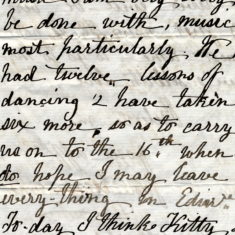 be done with, music
most particularly. We
had twelve lessons of
dancing & have taken
six more, so as to carry
us on to the 16.th when
do hope I may leave
every-thing in
To-day I think Kitty